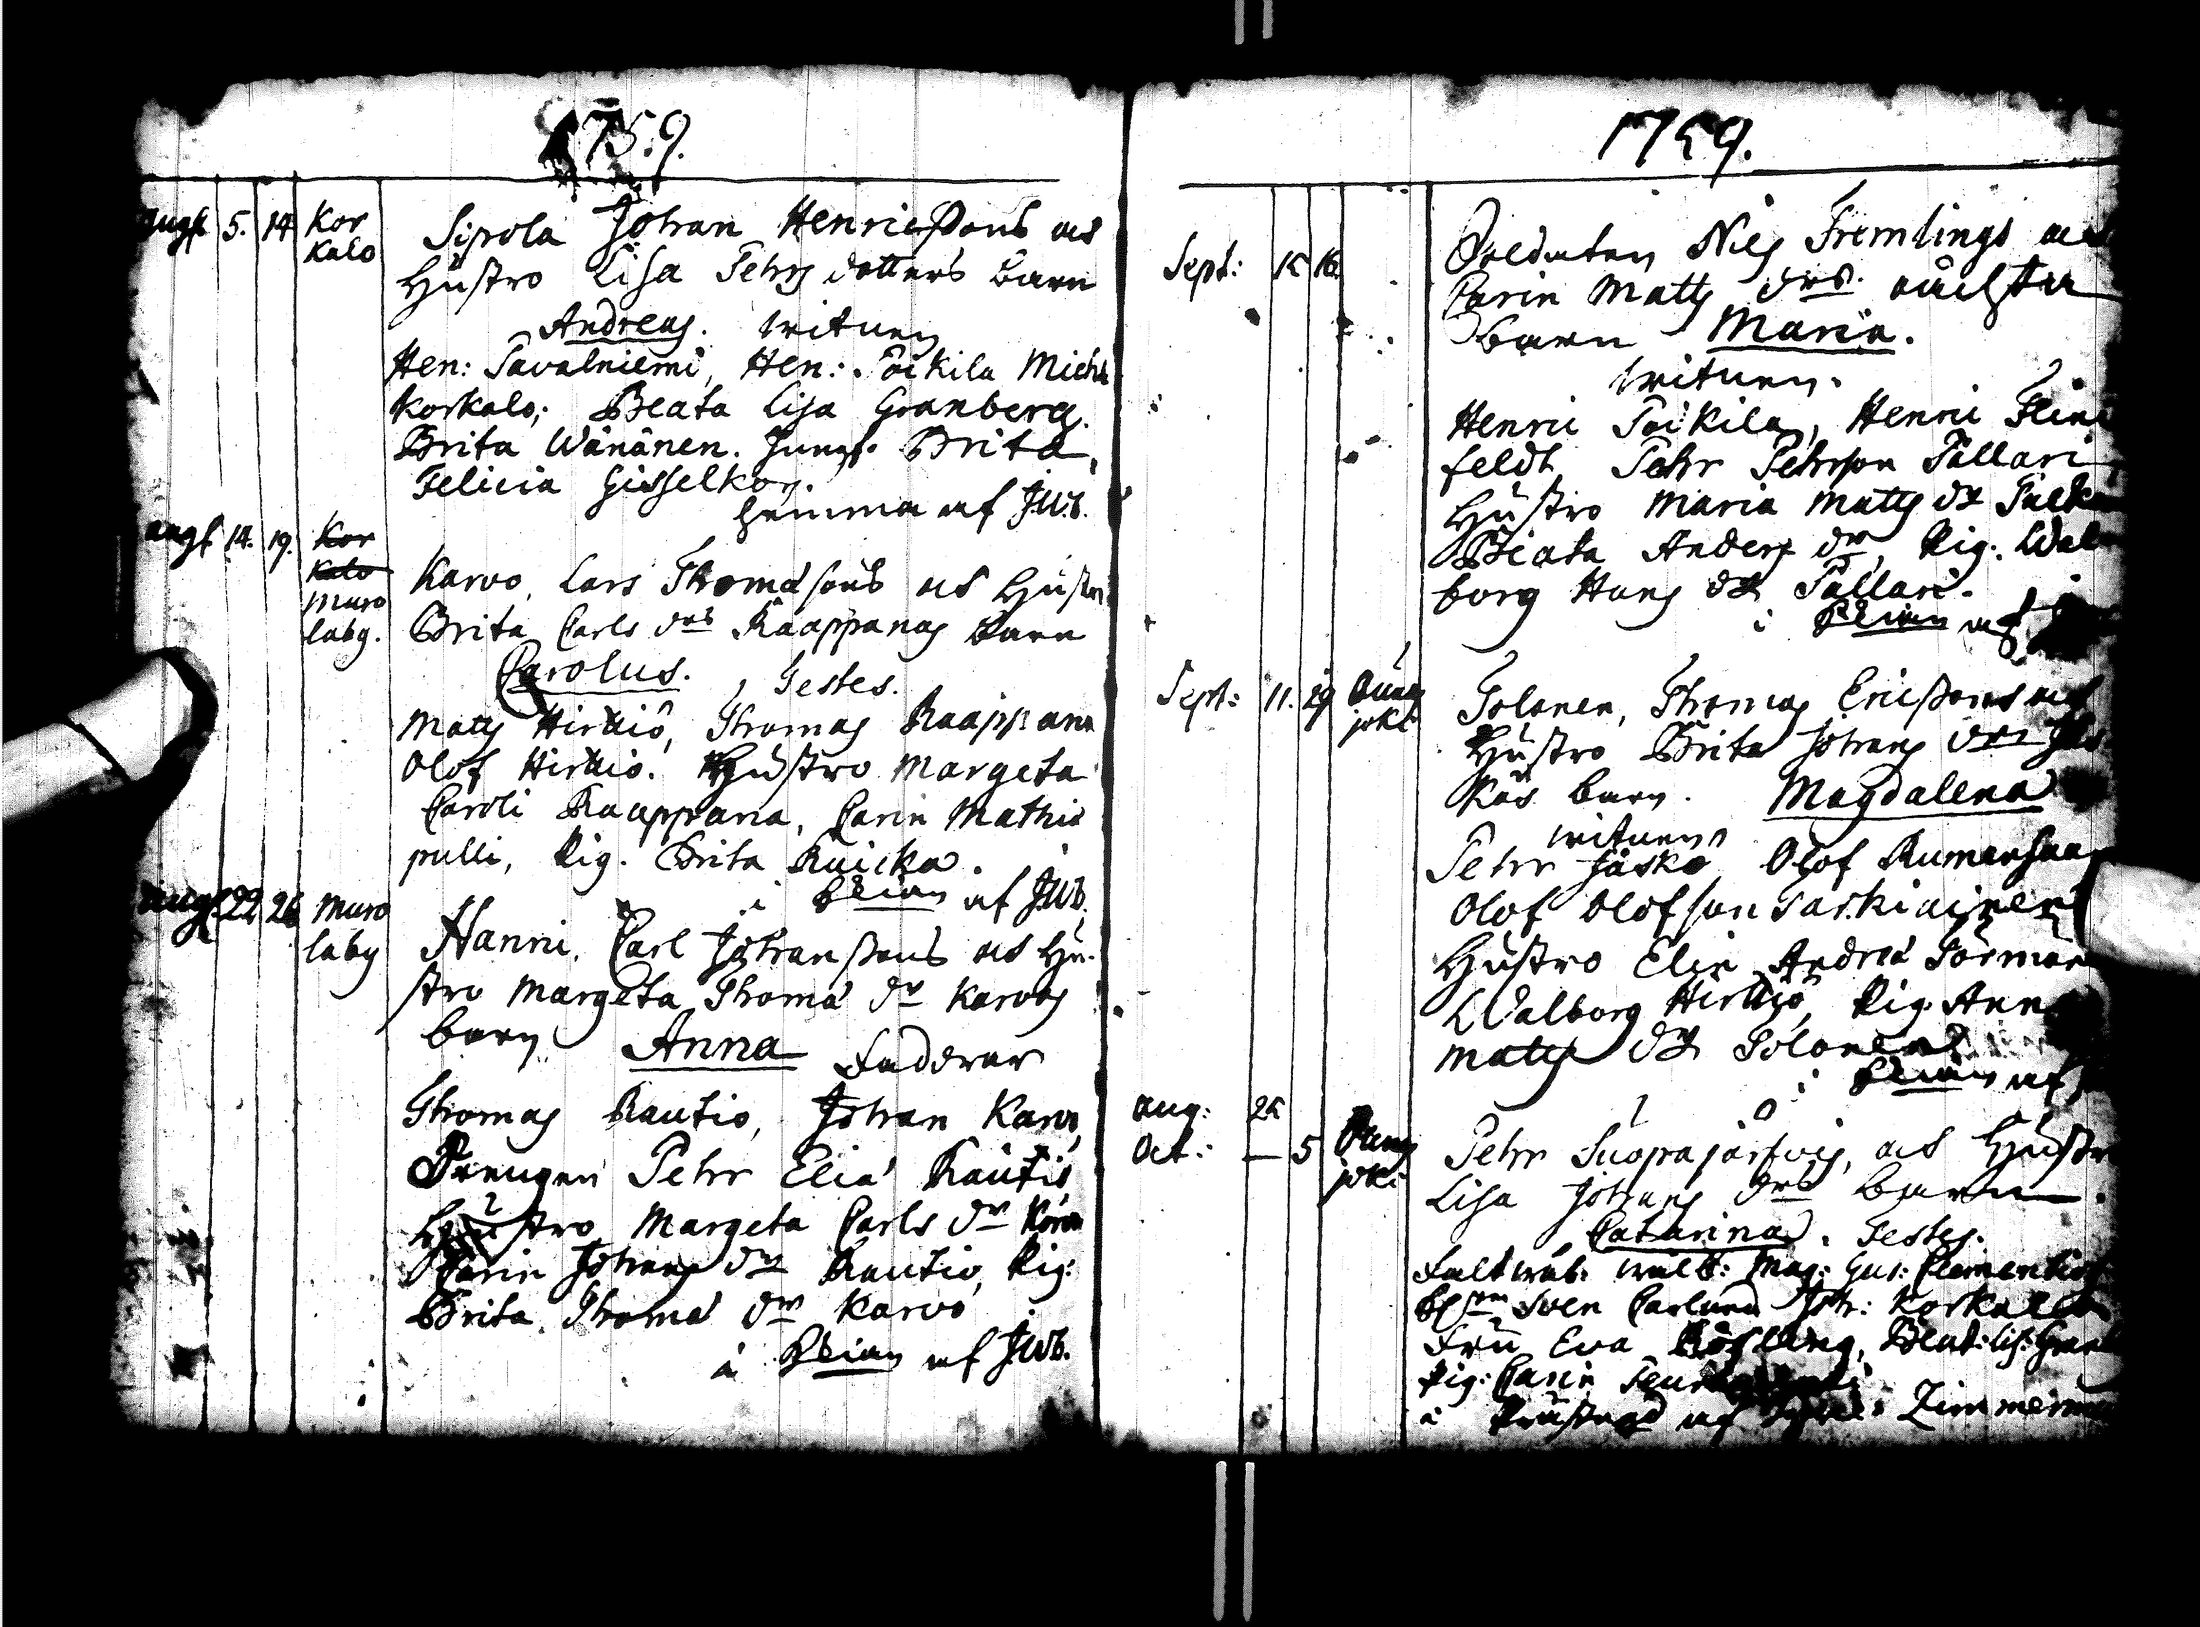 1759.
Augt 5. 14 Kor
kalo
Sipola Johan Henricssons ock
Hustro Lisa Pehrs dotters barn
Andreas. witnen
Hen: Pavalniemi, Hen: Poikila Mich:
Korkalo; Beata Lisa Granberg.
Brita Wänänen. Jungf. Brita
Felicia Gisselkors.
hemma af J.W.b.
Augt 14. 19. Kor
kalo
Muro
laby.
Karvo, Lars Thomæ sons ock Hustro
Brita Carls drs Kaappanas barn
Carolus. Testes.
Matts Hirttiö, Thomas Kaappana
Olof Hirttiö. Hustro Margeta
Caroli Kaappana, Carin Mathiæ
pulli, Pig. Brita Kuicka.
i Kÿrian af J.W.b.
Augt 22 26 Muro
laby
Hanni, Carl Johanssons ock Hu-
stro Margeta Thomæ dr Karvos
barn Anna Faddrar
Thomas Rautio, Johan Karvo,
Drengen Pehr Eliæ Rautio
Hustro Margeta Carls dr Karvo
Carin Johans dr Rautio, Pig:
Brita Thomæ dr Karvo
i Kÿrian af J.W.b.
1759.
Sept: 15 16.
Soldaten Nils Fremlings ock
Carin Matts drs oächta
barn Maria.
witnen.
Henric Poikila, Henric Flink
feldt, Pehr Pehrson Pallari
Hustro Maria Matts dr
Beata Anders dr, Pig: Wal
borg Hans dr Pallari.
i Kÿrian af
Sept: 11. 29 Ounas
joki
Tolonen, Thomas Ericssons ock
Hustro Brita Johans drs Jäs
käs barn. Magdalena
witnen
Pehr Jäskö, Olof Kumensaar
Olof Olofson Parkiainen
Hustro Elin Andreæ Törmän
Walborg Hirttiö, Pig. Anna
Matts dr Tolonen
i Kÿrian af
Aug: 25
Oct: — 5 Ounas
joki
Pehr Suoprajärfvis, ock Hustro
Lisa Johans drs barn
Catarina. Testes.
Mag: Gus: Clementeof
Sven Carlund Joh: Korkalo
Fru Eva Rösling, Beat: Lis: Granb
Pig: Carin
i Prästgård af Zimmerman